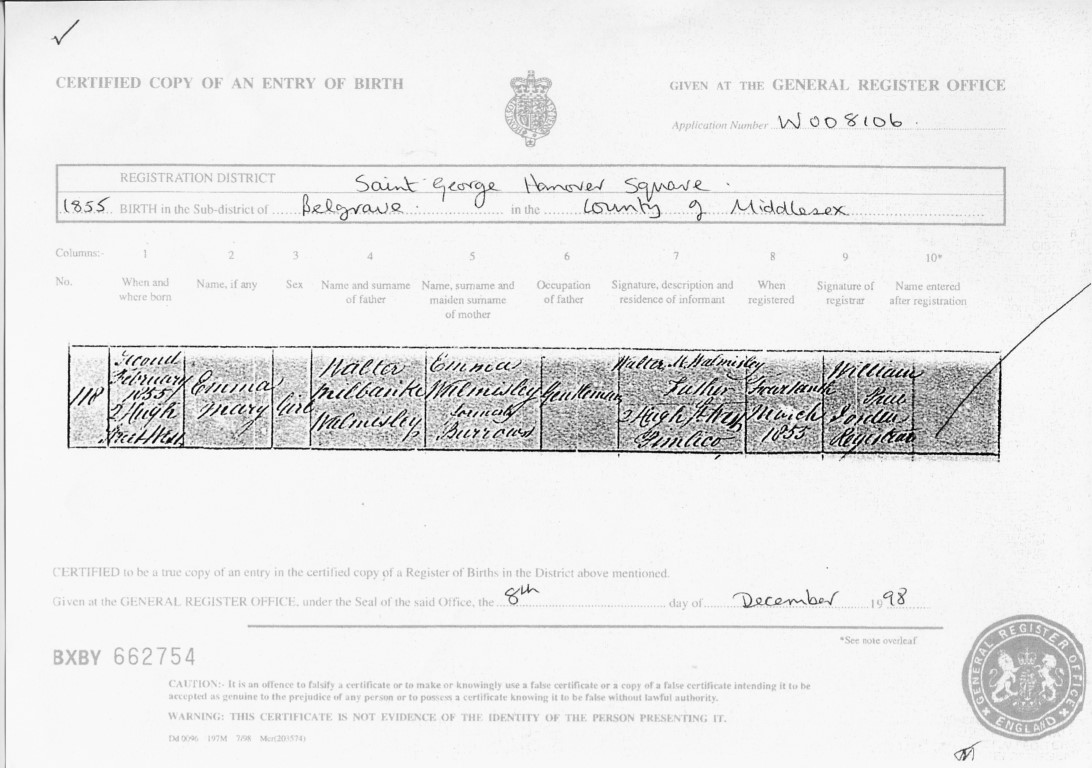 CERTIFIED COPY OF AN ENTRY OF BIRTH
GIVEN AT THE GENERAL REGISTER OFFICE
Application Number W008106
REGISTRATION DISTRICT Saint George Hanover Square
1855 BIRTH in the Sub-district of Belgrave in the County of Middlesex
Columns:- 1 2 3 4 5 6 7 8 9 10*
No.
When and
where born
Name, if any
Sex
Name and surname
of father
Name, surname and
maiden surname
of mother
Occupation
of father
Signature, description and
residence of informant
When
registered
Signature of
registrar
Name entered
after registration
118
Second
February
1855
2 Hugh
Street West
Emma
Mary
Girl
Walter
Milbanke
Walmisley
Emma
Walmisley
formerly
Burrows
Gentleman
Walter M. Walmisley
Father
2 Hugh St West
Pimlico
March
1855
William
Registrar
CERTIFIED to be a true copy of an entry in the certified copy of a Register of Births in the District above mentioned.
Given at the GENERAL REGISTER OFFICE, under the Seal of the said Office, the 8th day of December 1998
*See note overleaf
BXBY 662754
CAUTION:- It is an offence to falsify a certificate or to make or knowingly use a false certificate or a copy of a false certificate intending it to be
accepted as genuine to the prejudice of any person or to possess a certificate knowing it to be false without lawful authority.
WARNING: THIS CERTIFICATE IS NOT EVIDENCE OF THE IDENTITY OF THE PERSON PRESENTING IT.
GENERAL REGISTER OFFICE
ENGLAND